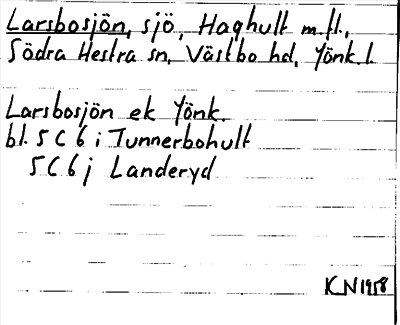 Larsbosjön, sjö, Haghult m.fl.,
Södra Hestra sn, Västbo hd, Jönk. l.
Larsbosjön ek Jönk.
bl. 5 C 6 i Tunnerbohult
5 C 6 j Landeryd
KN 1958